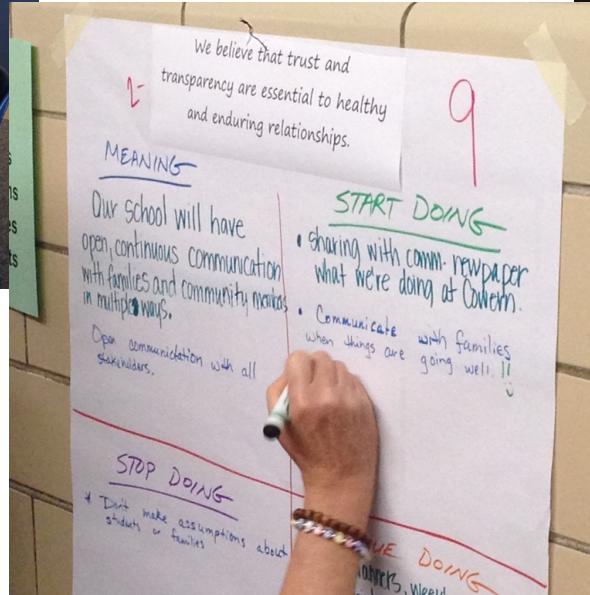 We believe that trust and
transparency are essential to healthy
and enduring relationships.
2-
9
MEANING
Our school will have
open, continuous communication
with families and community members
in multiple ways.
Open communictation with all
stakeholders.
START DOING
• sharing with comm. newpaper
what we're doing at Cowern.
• Communicate with families
when things are going well. !!
STOP DOING
* Don't make assumptions about
students or families
UE DOING